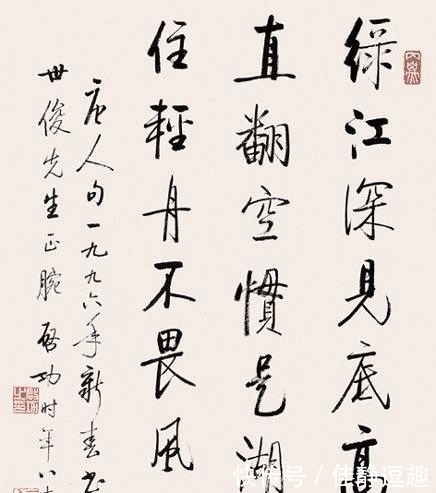 綠江深見底高
直翻空慣是湖
住輕舟不畏風
唐人句一九九六年新春書
世俊先生正腕 启功时年八
快传号 / 佳静逗趣